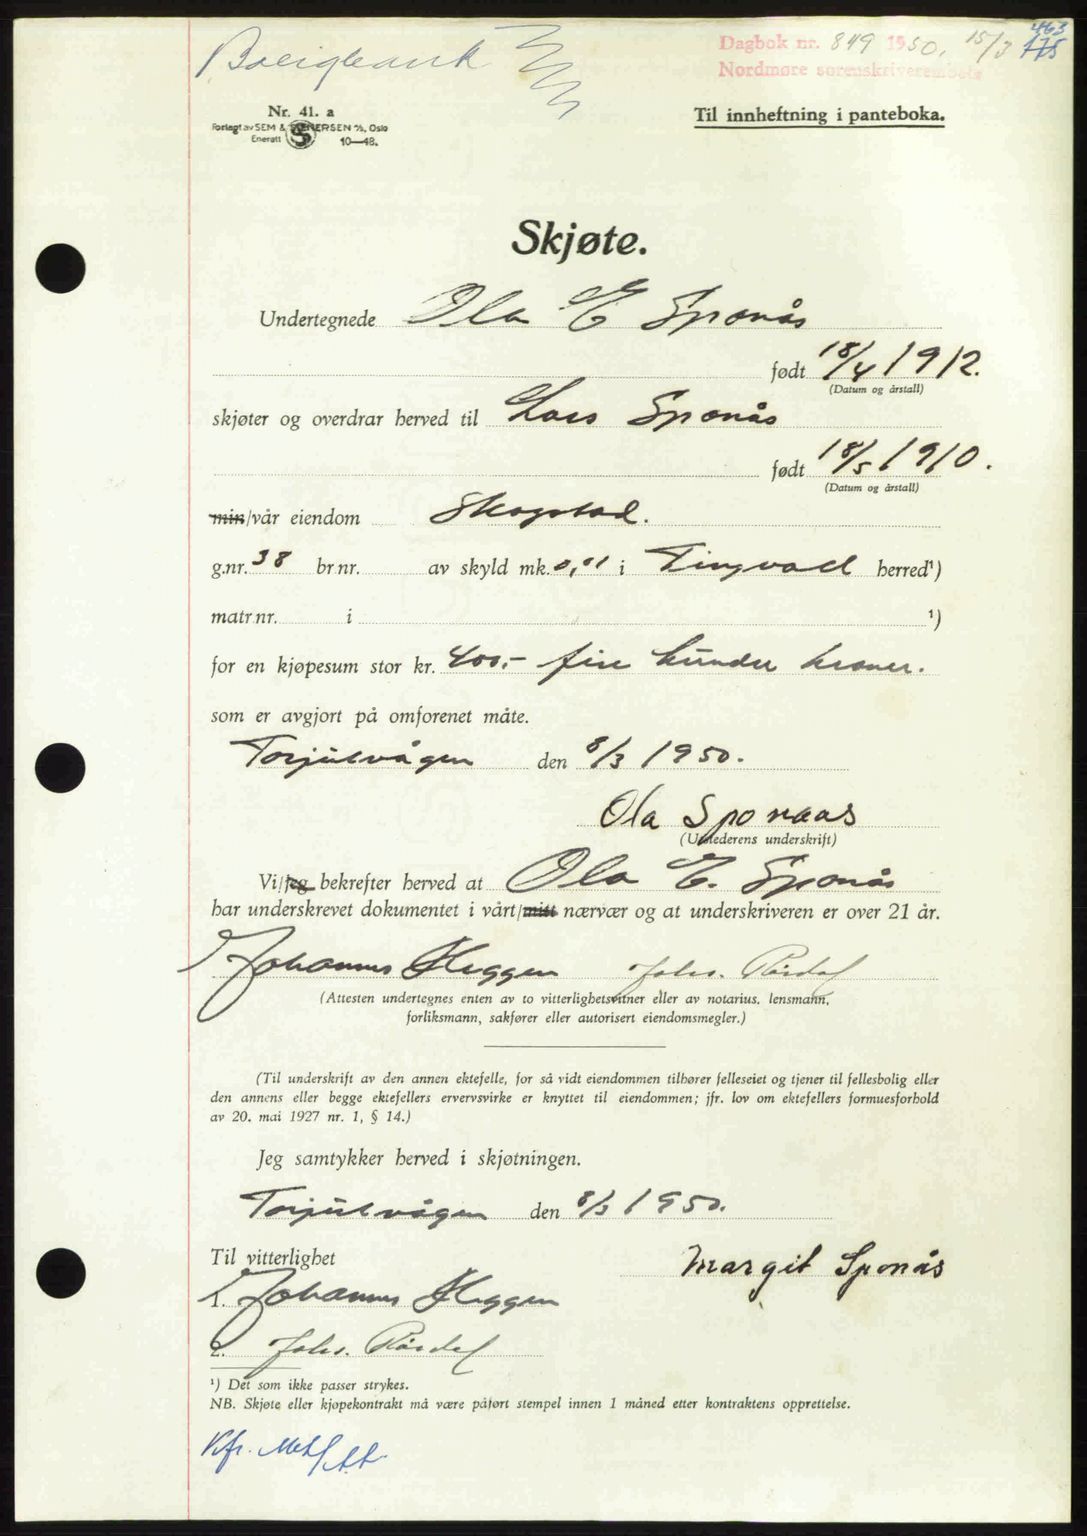 Boligbank
Dagbok nr. 849 1950. 15/3
463
775
Nordmøre sorenskriverembete
Nr. 41. a
Forlagt av SEM & STENERSEN A/S, Oslo
Enerett 10—48.
Til innheftning i panteboka.
Skjøte.
Undertegnede Ola E Sponås
født 18/4 1912.
(Datum og årstall)
skjøter og overdrar herved til Lars Sponås
født 18/5 1910.
(Datum og årstall)
min/vår eiendom Skogstad.
g.nr. 38 br.nr. av skyld mk. 0,01 i Tingvoll herred¹)
matr.nr. i ¹)
for en kjøpesum stor kr. 400.- fire hundre kroner.
som er avgjort på omforenet måte.
Torjulvågen den 8/3 1950.
Ola Sponaas
(Utstederens underskrift)
Vi/jeg bekrefter herved at Ola E. Sponås
har underskrevet dokumentet i vårt/mitt nærvær og at underskriveren er over 21 år.
Johannes Heggen Johs. Rårdal
(Attesten undertegnes enten av to vitterlighetsvitner eller av notarius, lensmann,
forliksmann, sakfører eller autorisert eiendomsmegler.)
(Til underskrift av den annen ektefelle, for så vidt eiendommen tilhører felleseiet og tjener til fellesbolig eller
den annens eller begge ektefellers ervervsvirke er knyttet til eiendommen; jfr. lov om ektefellers formuesforhold
av 20. mai 1927 nr. 1, § 14.)
Jeg samtykker herved i skjøtningen.
Torjulvågen den 8/3 1950.
Til vitterlighet
Margit Sponås
1. Johannes Heggen
2. Johs. Rårdal
¹) Det som ikke passer strykes.
NB. Skjøte eller kjøpekontrakt må være påført stempel innen 1 måned etter kontraktens opprettelse.